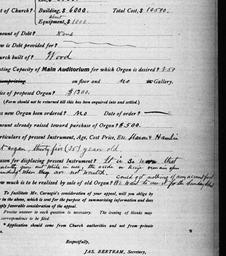 of Church? Building, $ 6000. Total Cost, $ 10500.
Equipment, $ 1000.
mount of Debt? None
is Debt provided for?
urch built of? Wood
ating Capacity of Main Auditorium for which Organ is desired? 350
on floor and no in Gallery.
ice of proposed Organ? $1300.
(Form should not be returned till this has been enquired into and settled.)
s new Organ been ordered? No Date of order?
amount already raised toward purchase of Organ? $500.
rticulars of present Instrument, Age, Cost Price, Etc. Mason & Hamlin
organ, thirty five (35) years old.
ason for displacing present Instrument? It is so worn that
when they are not
much is to be realized by sale of old Organ?
To facilitate Mr. Carnegie's consideration of your appeal, will you oblige by
in the above, which is used for the purpose of summarising information and does
ply favorable consideration of the appeal.
Precise answer to each question is necessary. The issuing of blanks may
correspondence to be filed.
Application should come from Church authorities and not from private
Respectfully,
JAS. BERTRAM, Secretary,